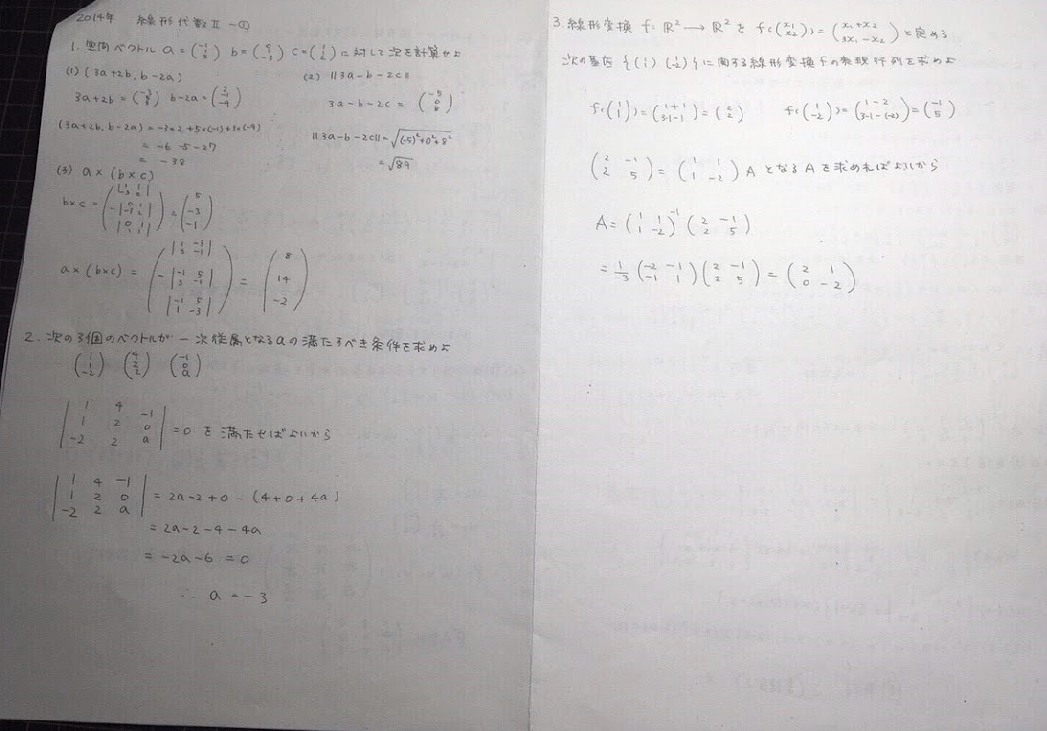 2014年 線形代数Ⅱ-①
1. 空間ベクトル a = (-1 1 3) b = (0 1 -1) c = (1 1 2) に対して次を計算せよ
(1) (3a+2b, b-2a)
3a+2b = (-3 5 ) b-2a = (2 -1 )
(3a+2b, b-2a) = -3×2 + 5×(-1) + ×(-)
= -6 -5 -27
= -38
(2) ||3a-b-2c||
3a-b-2c = (-5 0 8)
||3a-b-2c|| = √(-5)²+0²+8²
= √89
(3) a×(b×c)
b×c = = (5 -3 -1)
a×(b×c) = (|1 -1 3 -1| -|-1 5 3 -1| |-1 5 1 -3|) = (8 14 -2)
2. 次の3個のベクトルが一次従属となるaの満たすべき条件を求めよ
(1 1 -2) (4 2 2) (-1 0 a)
|1 4 -1
1 2 0
-2 2 a| = 0 を満たせばよいから
|1 4 -1
1 2 0
-2 2 a| = 2a-2+0-(4+0+4a)
= 2a-2-4-4a
= -2a-6 = 0
∴ a = -3
3. 線形変換 f: R² → R² を f((x₁ x₂)) = (x₁+x₂ 3x₁-x₂) と定める
次の基底 {(1 1) (1 -2)} に関する線形変換fの表現行列を求めよ
f((1 1)) = (1+1 3·1-1) = (2 2) f((1 -2)) = (1-2 3·1-(-2)) = (-1 5)
(2 -1
2 5) = (1 1
1 -2) A となるAを求めればよいから
A = (1 1
1 -2)⁻¹ (2 -1
2 5)
= (-2 -1
-1 1) (2 -1
2 5) = (2 1
0 -2)